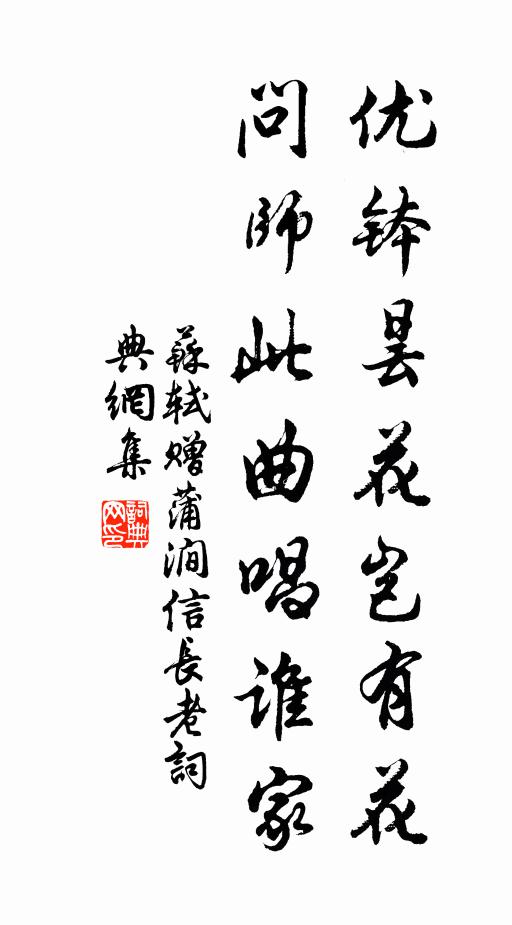 优钵昙花岂有花
问师此曲唱谁家
蘇軾赠蒲涧信長老詞
典網集
詞典
网印